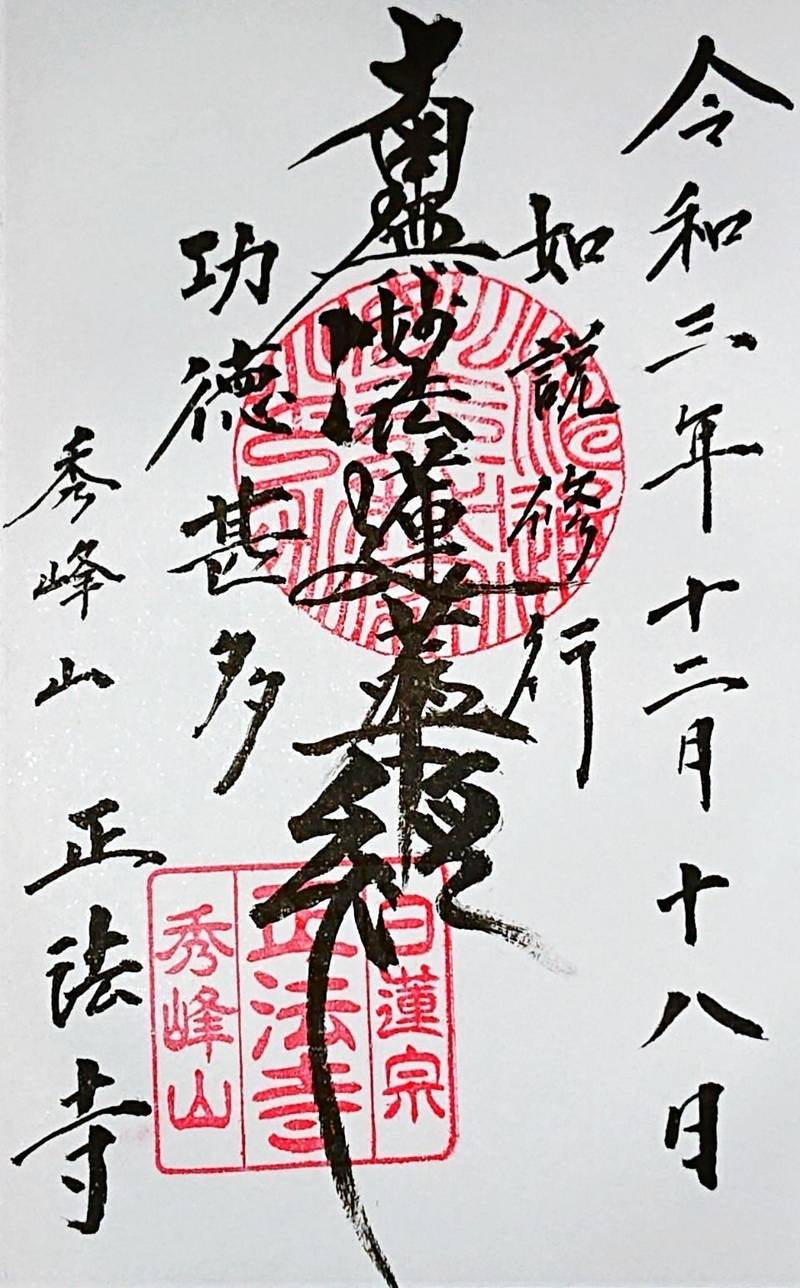 令和三年十二月十八日
如説修行
南無妙法蓮華経
功徳甚多
秀峰山 正法寺
日蓮宗
正法寺
秀峰山